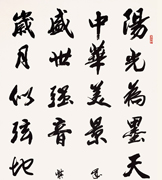 陽光為墨天
中華美景
盛世强音
歲月似弦地